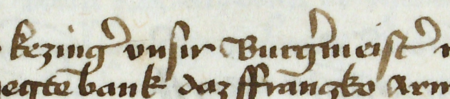 kezing͛ vnsir Burg͛meist͛
egte bank daz ffrangko Arn